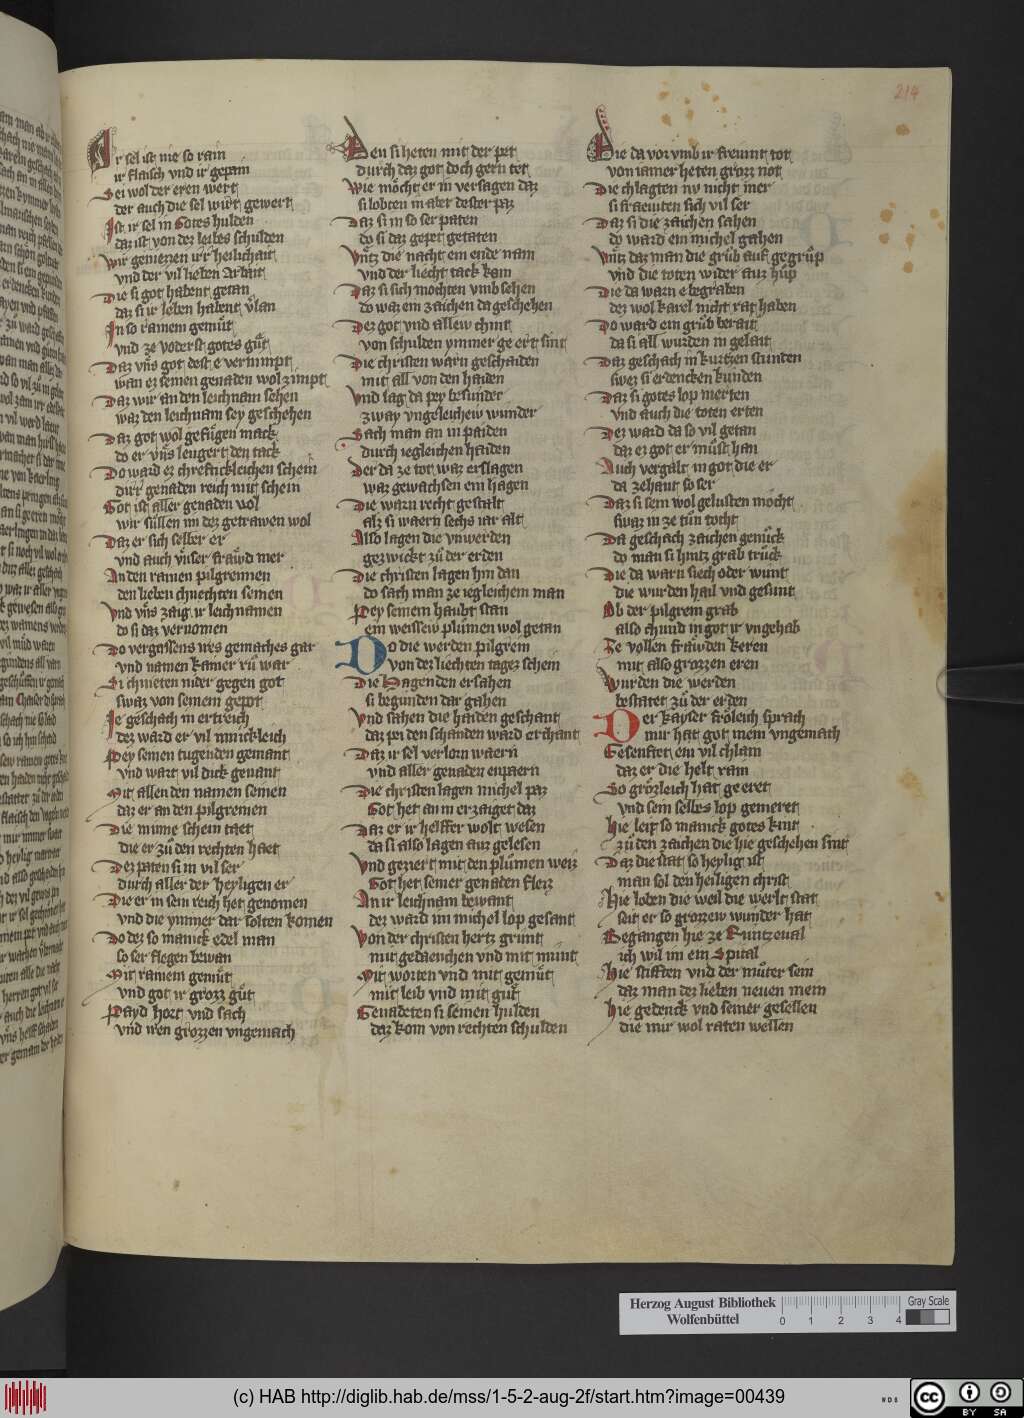 214
Ir sel ist nie so rain
ir flaisch vnd ir gepain
Sei wol der eren wert
der auch die sel wirt gewert
Ist ir sel in Gotes hulden
daz ist von dez leibes schulden
Wir geniezzen irr heilichait
vnd der vil lieben Arbait
Die si got habent getan
daz si ir leben habent vlan
In so rainem gemuͤt
vnd ze voderst gotes guͤt
Daz vns got dest e vernimpt
wan ez seinen genaden wol zimpt
Daz wir an den leichnam sehen
waz den leichnam sey geschehen
Daz got wol gefuͤgen mack
do er vns lengert den tack
Do ward ez chreftickleichen schein
durr genaden reich mit schein
Got ist aller genaden vol
wir suͤllen im dez getrawen wol
Daz er sich selber er
vnd auch vnser frawd mer
An den rainen pilgreimen
den lieben chnechten seinen
Vnd vns zaig ir leichnamen
do si daz vernomen
Do vergassens irs gemaches gar
vnd namen kainer ru war
Si chnieten nider gegen got
swaz von seinem gepot
Je geschach in ertreich
dez ward er vil innickleich
Pey seinen tugenden gemant
vnd wart vil dick genant
Mit allen den namen seinen
daz er an den pilgreimen
Die minne schein taet
die er zu den rechten haet
Dez paten si in vil ser
durch aller der heyligen er
Die er in sein reich het genomen
vnd die ymmer dar solten komen
Do dez so manick edel man
so ser flegen bewan
Mit rainem gemuͤt
vnd got ir grozz guͤt
Payd hort vnd sach
vnd iren grozzen vngemach
Den si heten mit der pet
durch daz got doch gern tet
Wie moͤcht er in versagen daz
si lobten in aber dester paz
Daz si in so ser paten
do si daz gepet getaten
Vntz die nacht ein ende nam
vnd der liecht tack kam
Daz si sich mochten vmb sehen
do waz ein zaichen da geschehen
Dez got vnd allew chint
von schulden ymmer geert sint
Die christen warn geschaiden
mit all von den haiden
Vnd lag da pey besunder
zway vngeleichew wunder
Sach man an in paiden
durch iegleichen haiden
Der da ze tot waz erslagen
waz gewachsen ein hagen
Die warn recht gestalt
alz si waern sechs iar alt
Also lagen die vnwerden
gezwickt zu der erden
Die christen lagen hin dan
do sach man ze iegleichem man
Pey seinem haubt stan
ein weissew pluͤmen wol getan
Do die werden pilgreim
von dez liechten tagez schein
Die Hagen den ersahen
si begunden dar gahen
Vnd sahen die haiden geschant
daz pei den schanden ward erchant
Daz ir sel verlorn waern
vnd aller genaden enpaern
Die christen lagen michel paz
Got het an in erzaiget daz
Daz er ir helffer wolt wesen
da si also lagen auz gelesen
Vnd geziert mit den pluͤmen weiz
Got het seiner genaden fleiz
An ir leichnam bewant
dez ward im michel lop gesant
Von der christen hertz grunt
mit gedaenchen vnd mit munt
Mit worten vnd mit gemuͤt
mit leib vnd mit guͤt
Genadeten si seinen hulden
daz kom von rechten schulden
Die da vor vmb ir freunt tot
von iamer heten grozz not
Die chlagten nv nicht mer
si fraewten sich vil ser
Daz si die zaichen sahen
do ward ein michel gahen
Vntz daz man die gruͤb auf gegruͤp
vnd die toten wider auz huͤp
Die da warn e begraben
dez wol karel nicht rat haben
Do ward ein gruͤb berait
da si all wurden in gelait
Daz geschach in kurtzen stunden
swez si erdencken kunden
Daz si gotes lop merten
vnd auch die toten erten
Dez ward da so vil getan
daz ez got er muͤst han
Auch vergalt in got die er
da zehant so ser
Daz si sein wol gelusten moͤcht
swaz in ze tuͤn tocht
Da geschach zaichen genuͤck
do man si hintz grab truͤck
Die da warn siech oder wunt
die wurden hail vnd gesunt
Ob der pilgreim grab
also chund in got ir vngehab
Ze vollen frawden keren
mit also grozzen eren
Wurden die werden
bestatet zu der erden
Der kayser froͤleich sprach
mir hat got mein vngemach
Gesenftet ein vil chlain
daz er die helt rain
So groͤzleich hat geeret
vnd sein selbes lop gemeret
Hie leit so manick gotes kint
zu den zaichen die hie geschehen sint
Daz die stat so heylig ist
man sol den heiligen christ
Hie loben die weil die werlt stat
seit er so grozzew wunder hat
Begangen hie ze Runtzeual
ich wil im ein Spital
Hie stifften vnd der muͤter sein
daz man der lieben neuen mein
Hie gedenck vnd seiner gesellen
die mir wol raten wellen
Herzog August Bibliothek
Wolfenbüttel
0 1 2 3 4
Gray Scale
(c) HAB http://diglib.hab.de/mss/1-5-2-aug-2f/start.htm?image=00439
WDB
cc BY SA